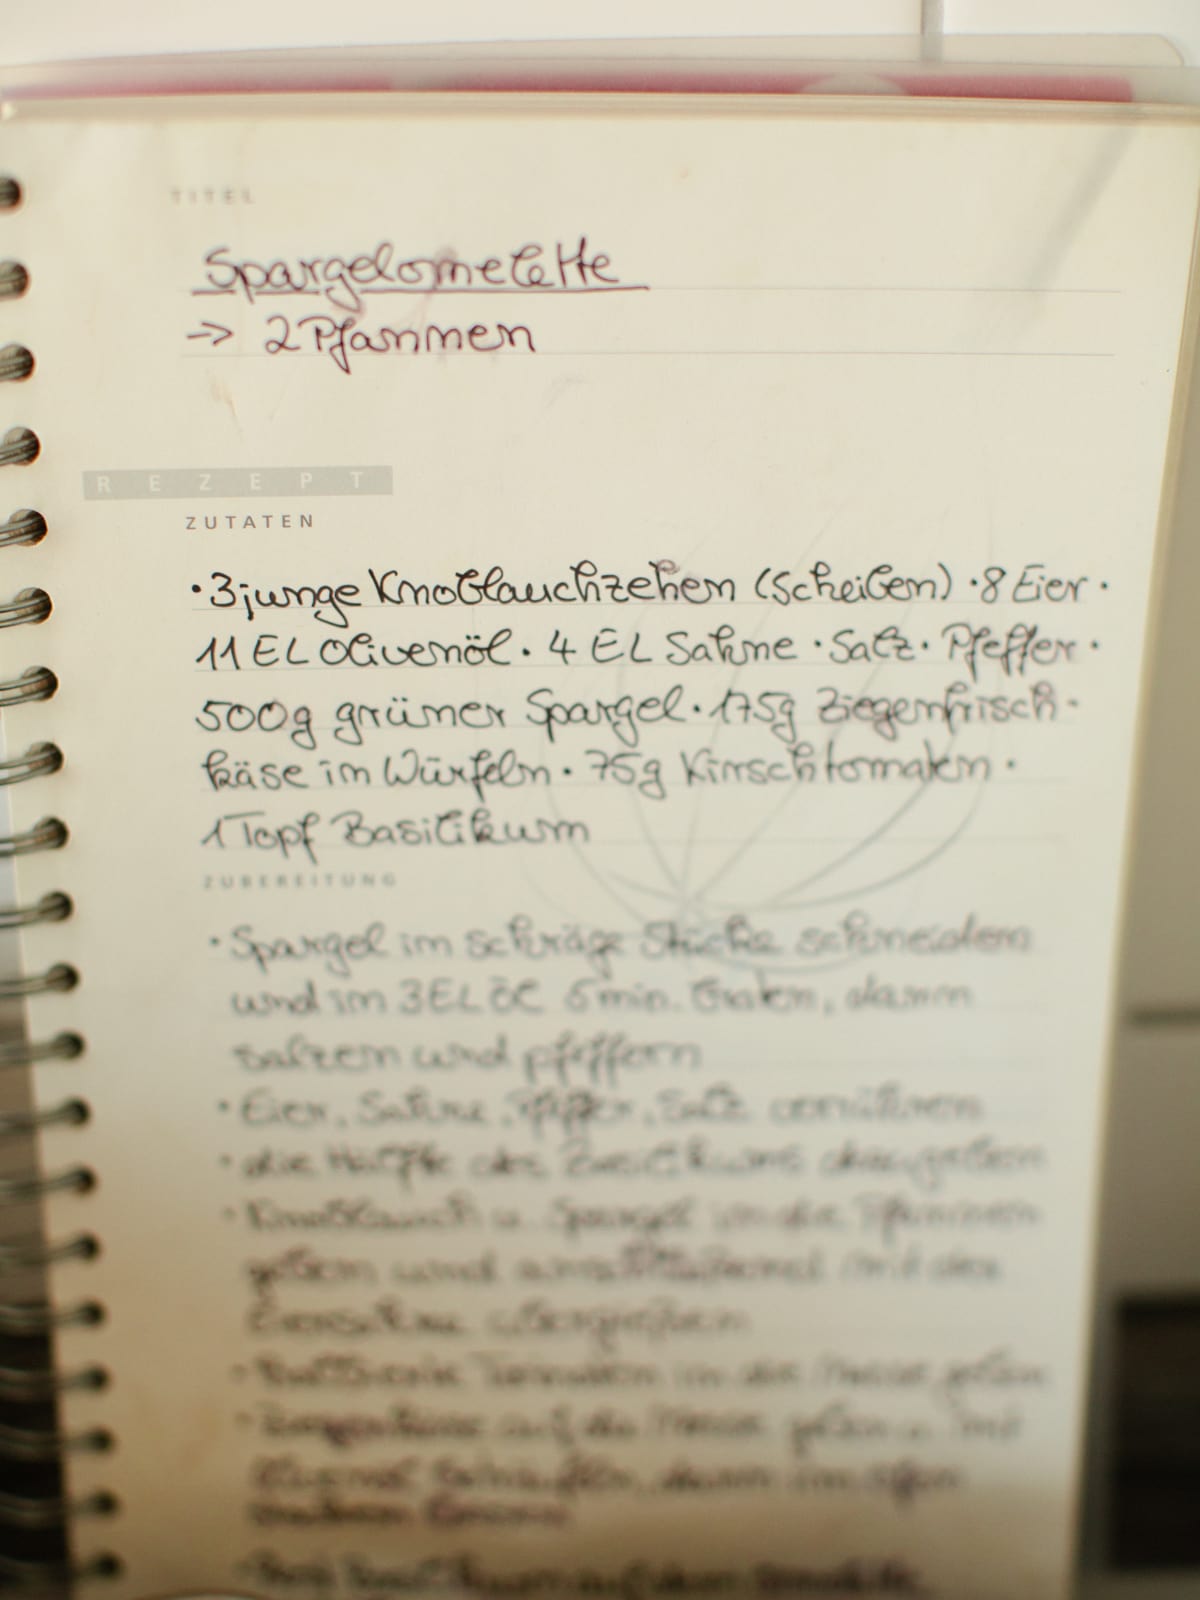 TITEL
Spargelomelette
→ 2 Pfannen
REZEPT
ZUTATEN
· 3 junge Knoblauchzehen (Scheiben) · 8 Eier ·
11 EL Olivenöl · 4 EL Sahne · Salz · Pfeffer ·
500g grüner Spargel · 175g Ziegenfrisch-
käse in Würfeln · 75g Kirschtomaten ·
1 Topf Basilikum
ZUBEREITUNG
· Spargel in schräge Stücke schneiden
und in 3 EL Öl 5 min. braten, dann
salzen und pfeffern
· Eier, Sahne, Pfeffer, Salz verrühren
· die Hälfte des Basilikums dazugeben
· Knoblauch u. Spargel in die Pfannen
geben und anschließend mit der
Eiersahne übergießen
· Tomaten in die Masse geben
· Ziegenkäse auf die Masse geben u. mit
dann im Ofen